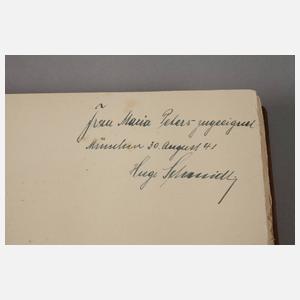 Frau Maria Peters zugeeignet
München 30. August 41
Hugo Schmidt